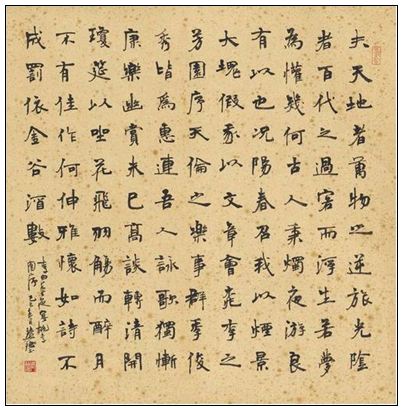 夫天地者萬物之逆旅光陰
者百代之過客而浮生若夢
為懽幾何古人秉燭夜游良
有以也況陽春召我以煙景
大塊假我以文章會桃李之
芳園序天倫之樂事群季俊
秀皆為惠連吾人詠歌獨慚
康樂幽賞未已高談轉清開
瓊筵以坐花飛羽觴而醉月
不有佳作何伸雅懷如詩不
成罰依金谷酒數
園序